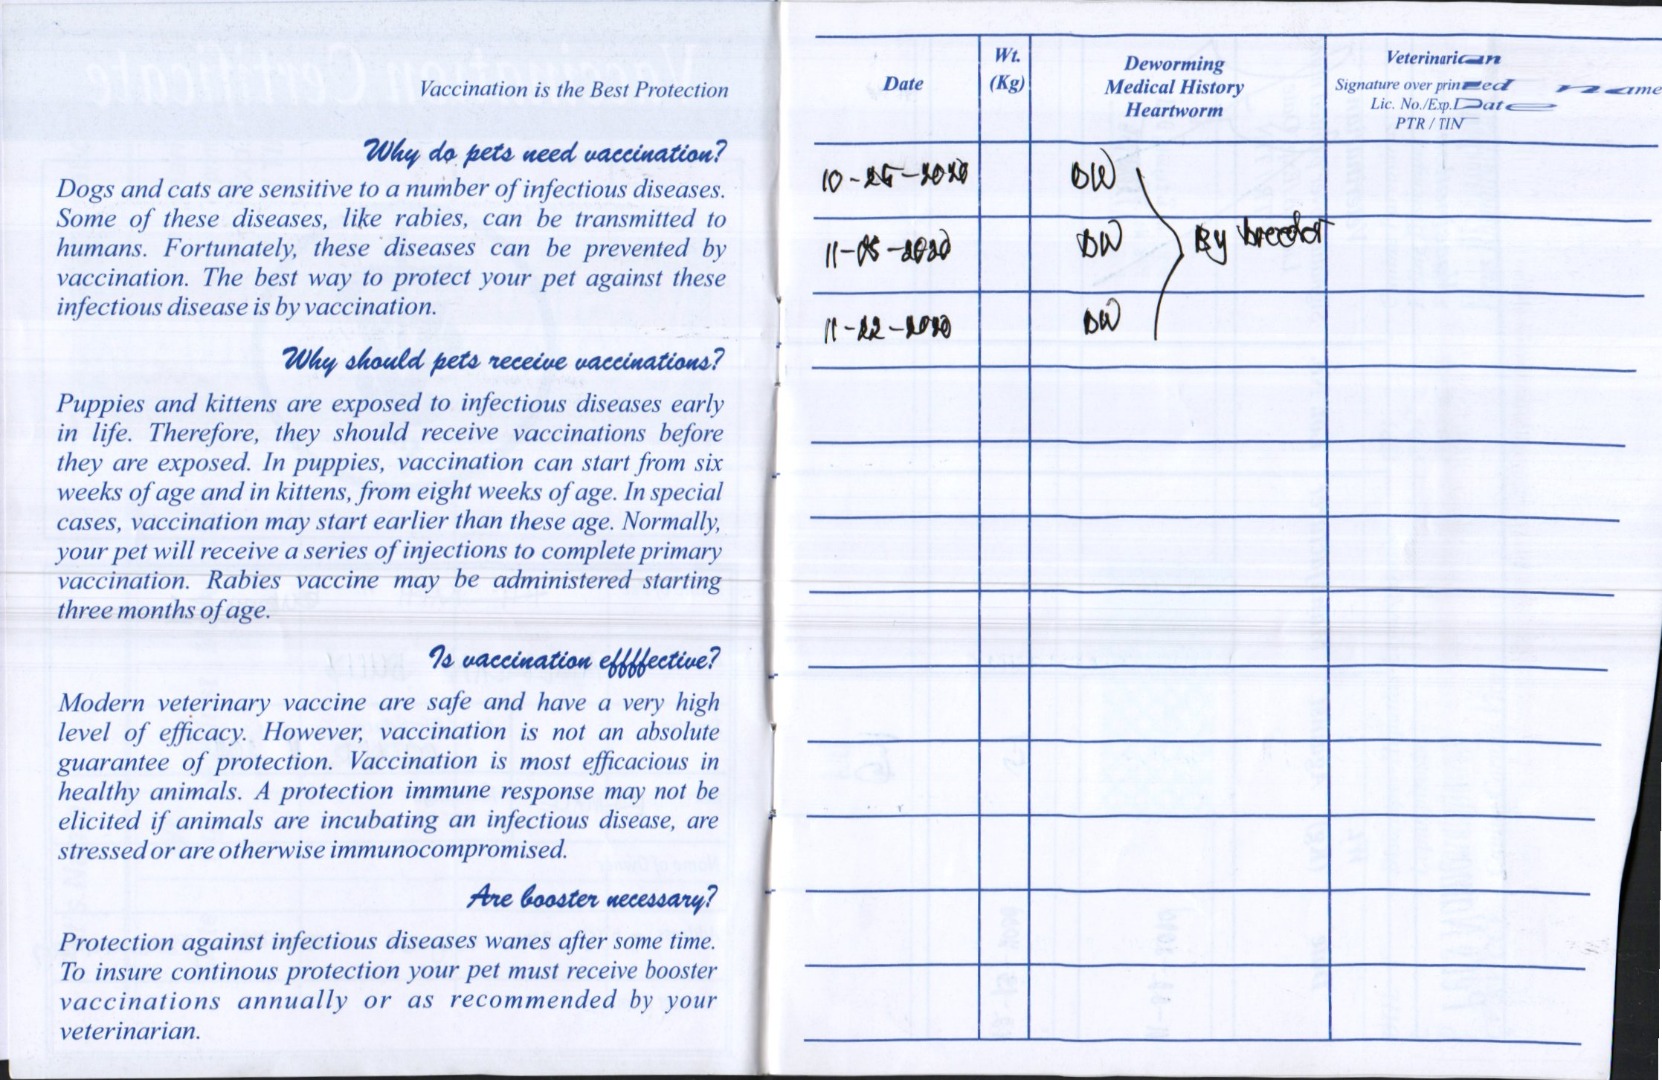 Vaccination is the Best Protection
Why do pets need vaccination?
Dogs and cats are sensitive to a number of infectious diseases.
Some of these diseases, like rabies, can be transmitted to
humans. Fortunately, these diseases can be prevented by
vaccination. The best way to protect your pet against these
infectious disease is by vaccination.
Why should pets receive vaccinations?
Puppies and kittens are exposed to infectious diseases early
in life. Therefore, they should receive vaccinations before
they are exposed. In puppies, vaccination can start from six
weeks of age and in kittens, from eight weeks of age. In special
cases, vaccination may start earlier than these age. Normally,
your pet will receive a series of injections to complete primary
vaccination. Rabies vaccine may be administered starting
three months of age.
Is vaccination effffective?
Modern veterinary vaccine are safe and have a very high
level of efficacy. However, vaccination is not an absolute
guarantee of protection. Vaccination is most efficacious in
healthy animals. A protection immune response may not be
elicited if animals are incubating an infectious disease, are
stressed or are otherwise immunocompromised.
Are booster necessary?
Protection against infectious diseases wanes after some time.
To insure continous protection your pet must receive booster
vaccinations annually or as recommended by your
veterinarian.
Date
Wt.
(Kg)
Deworming
Medical History
Heartworm
Veterinarian
Signature over printed name
Lic. No./Exp.Date
PTR / TIN
10-25-2020 DW
11-08-2020 DW By breeder
11-22-2020 DW